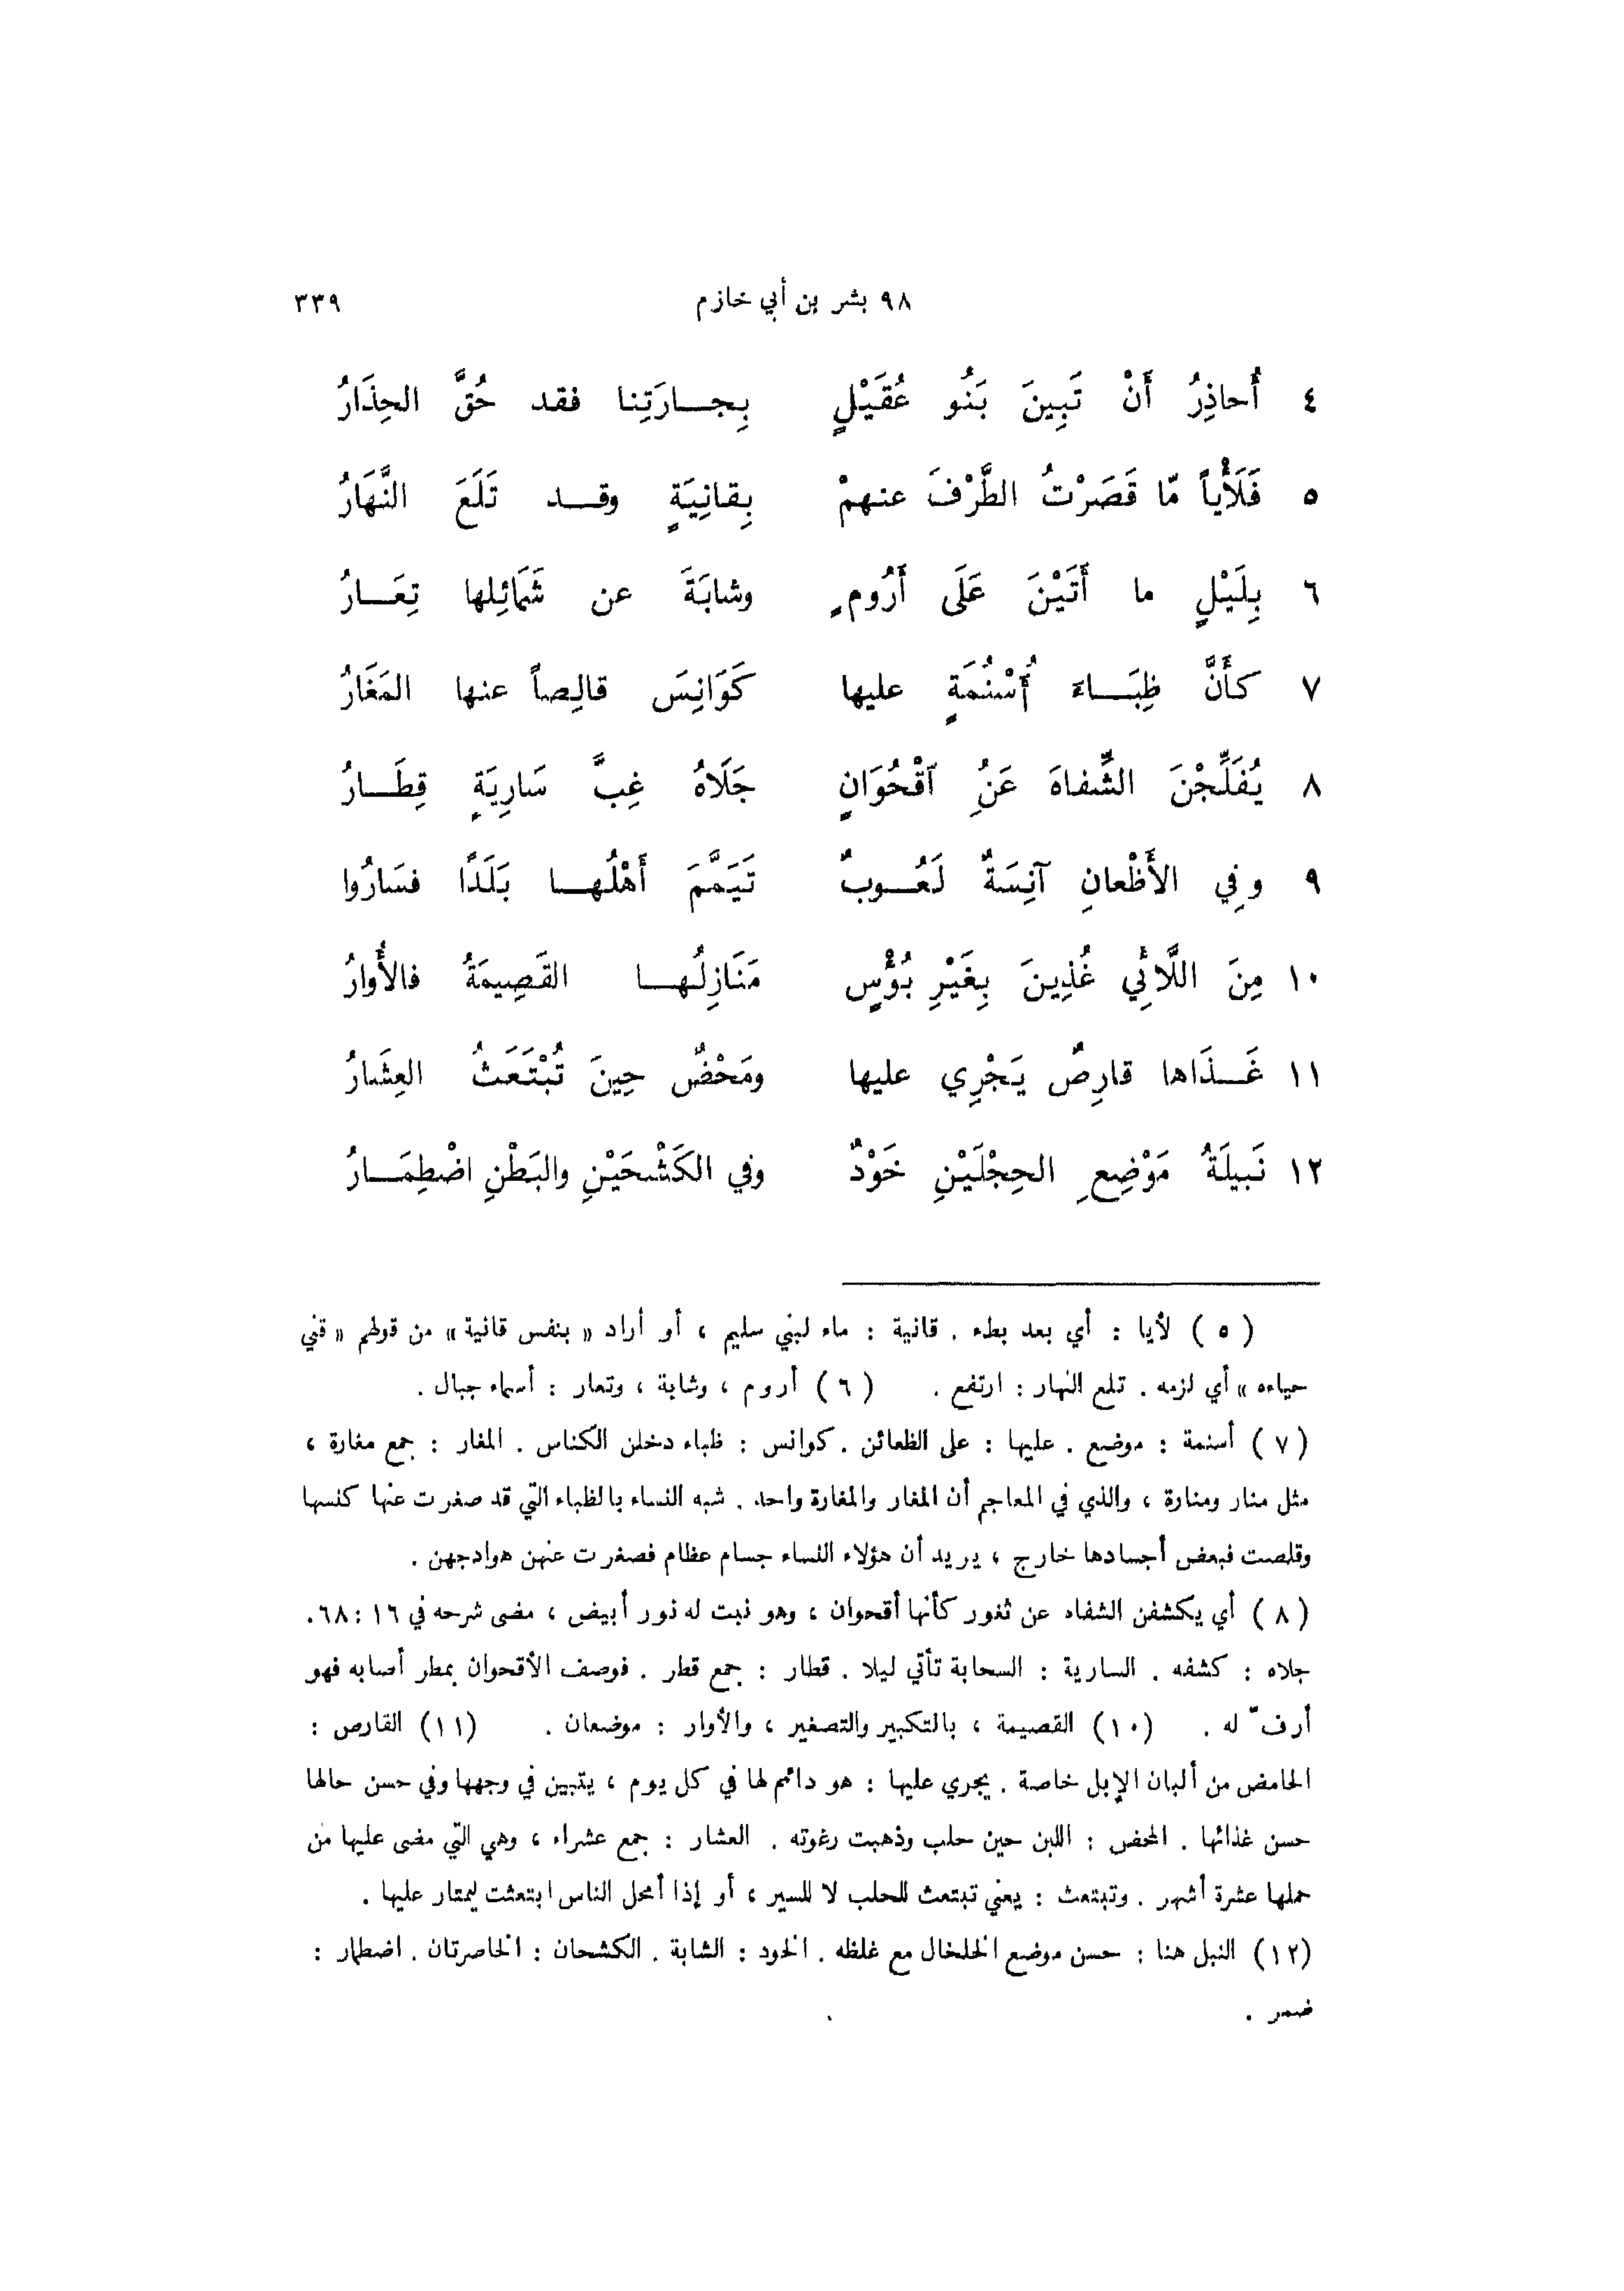 ٩٨ بشر بن أبي خازم ٣٣٩
٤ أُحاذِرُ أَنْ تَبِينَ بَنُو عُقَيْلٍ بِجـــارَتِنا فقد حُقَّ الحِذَارُ
٥ فَلَأْياً مّا قَصَرْتُ الطَّرْفَ عنهمْ بِقانِيَةٍ وقـــد تَلَعَ النَّهَارُ
٦ بِلَيْلٍ ما أَتَيْنَ عَلَى أَرُومٍ وشابَةَ عن شَمَائِلها تِعَـــارُ
٧ كأَنَّ ظِبَـــاءَ أُسْنُمَةٍ عليها كَوَانِسَ قالِصاً عنها المَغَارُ
٨ يُفَلِّجْنَ الشِّفاهَ عَنُِ ٱقْحُوَانٍ جَلَاهُ غِبَّ سَارِيَةٍ قِطَـــارُ
٩ وفِي الأَظْعانِ آنِسَةٌ لَعُـــوبٌ تَيَمَّمَ أَهْلُهـــا بَلَدًا فسَارُوا
١٠ مِنَ اللَّائِي غُذِينَ بِغَيْرِ بُؤْسٍ مَنَازِلُهـــا القَصِيمَةُ فالأُوارُ
١١ غَـــذَاها قارِصٌ يَجْرِي عليها ومَحْضٌ حِينَ تُبْتَعَثُ العِشَارُ
١٢ نَبيلَةُ مَوْضِعِ الحِجْلَيْنِ خَوْدٌ وفي الكَشْحَيْنِ والبَطْنِ اضْطِمَـــارُ
( ٥ ) لأيا : أي بعد بطء . قانية : ماء لبني سليم ، أو أراد « بنفس قانية » من قولهم « قني
حياءه » أي لزمه . تلع النهار : ارتفع . ( ٦ ) أروم ، وشابة ، وتعار : أسماء جبال .
( ٧ ) أسنمة : موضع . عليها : على الظعائن . كوانس : ظباء دخلن الكناس . المغار : جمع مغارة ،
مثل منار ومنارة ، والذي في المعاجم أن المغار والمغارة واحد . شبه النساء بالظباء التي قد صغرت عنها كنسها
وقلصت فبعض أجسادها خارج ، يريد أن هؤلاء النساء جسام عظام فصغرت عنهن هوادجهن .
( ٨ ) أي يكشفن الشفاه عن ثغور كأنها أقحوان ، وهو نبت له نور أبيض ، مضى شرحه في ١٦ : ٦٨ .
جلاه : كشفه . السارية : السحابة تأتي ليلا . قطار : جمع قطر . فوصف الأقحوان بمطر أصابه فهو
أرفّ له . (١٠) القصيمة ، بالتكبير والتصغير ، والأوار : موضعان . (١١) القارص :
الحامض من ألبان الإبل خاصة . يجري عليها : هو دائم لها في كل يوم ، يتبين في وجهها وفي حسن حالها
حسن غذائها . المحض : اللبن حين حلب وذهبت رغوته . العشار : جمع عشراء ، وهي التي مضى عليها من
حملها عشرة أشهر . وتبتعث : يعني تبتعث للحلب لا للسير ، أو إذا أمحل الناس ابتعثت ليمتار عليها .
(١٢) النبل هنا : حسن موضع الخلخال مع غلظه . الخود : الشابة . الكشحان : الخاصرتان . اضطمار :
ضمر .